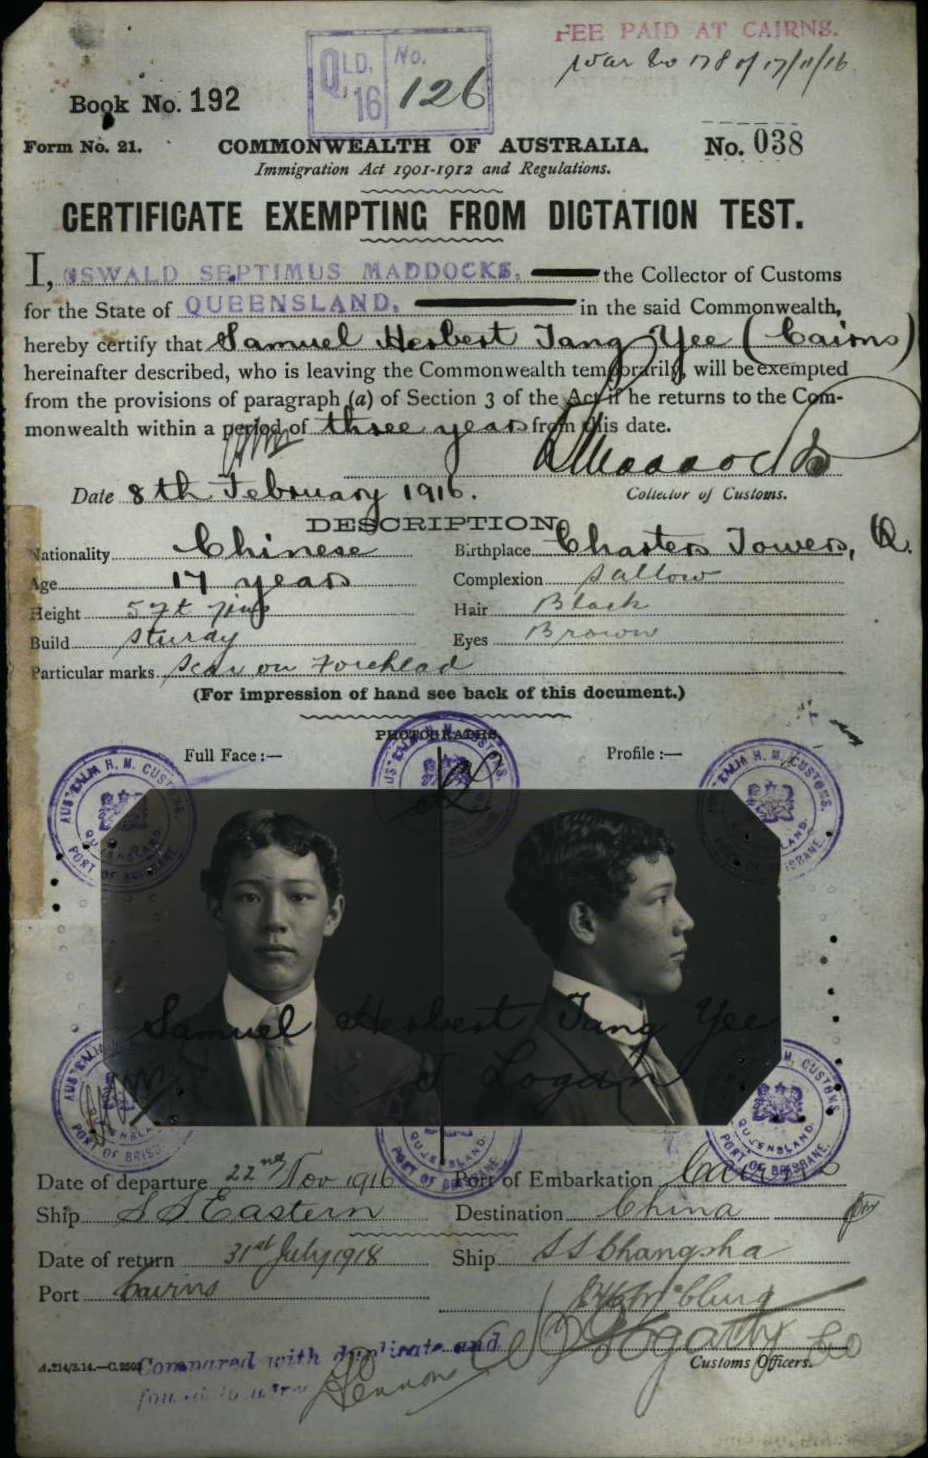 FEE PAID AT CAIRNS.
QLD. No.
16 126
Book No. 192
Form No. 21. COMMONWEALTH OF AUSTRALIA. No. 038
Immigration Act 1901-1912 and Regulations.
CERTIFICATE EXEMPTING FROM DICTATION TEST.
I, OSWALD SEPTIMUS MADDOCKS, the Collector of Customs
for the State of QUEENSLAND, in the said Commonwealth,
hereby certify that Samuel Herbert Tang Yee (Cairns)
hereinafter described, who is leaving the Commonwealth temporarily, will be exempted
from the provisions of paragraph (a) of Section 3 of the Act if he returns to the Com-
monwealth within a period of three years from this date.
Maddocks
Date 8th February 1916. Collector of Customs.
DESCRIPTION.
Nationality Chinese Birthplace Charters Towers, Q.
Age 17 years Complexion Sallow
Height 5ft 7ins Hair Black
Build Sturdy Eyes Brown
Particular marks Scar on Forehead
(For impression of hand see back of this document.)
PHOTOGRAPHS.
Full Face :— Profile :—
AUSTRALIA H. M. CUSTOMS. QUEENSLAND. PORT OF BRISBANE.
Samuel Herbert Tang Yee
J Logan
Date of departure 22nd Nov 1916 Port of Embarkation Cairns
Ship SS Eastern Destination China
Date of return 31st July 1918 Ship SS Changsha
Port Cairns
Customs Officers.
Compared with duplicate and